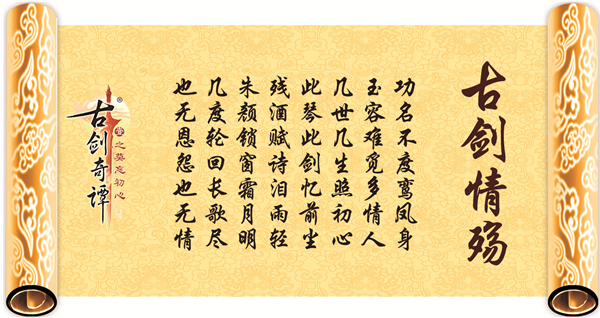 古剑情殇
功名不度鸾凤身
玉容难觅多情人
几世几生照初心
此琴此剑忆前尘
残酒赋诗泪雨轻
朱颜锁窗霜月明
几度轮回长歌尽
也无恩怨也无情
古剑奇谭
之莫忘初心